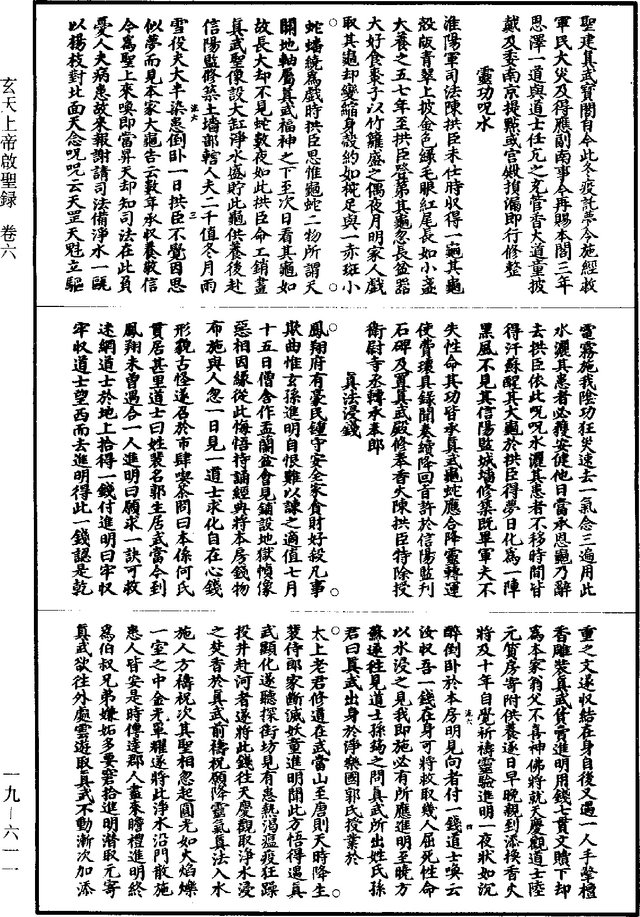 玄天上帝啟聖録 卷六
一九—六一一
聖建真武寶閣自今此冬疫託夢令施經救
軍民大災及得應副南事今再賜本閣三年
恩澤一道與道士任元之充管香火道童披
戴及委南京提點或宮殿損漏即行修整
靈功咒水
淮陽軍司法陳拱臣未仕時收得一龜其龜
殼版青翠上披金色綠毛眼紅尾長如小盞
大養之五七年至拱臣登第其龜忽長盆器
大好食棗子以竹籠盛之偶夜月明家人戲
取其龜却變縮身殼約如梡足與一赤斑小
蛇蟠繞為戲時拱臣思惟龜蛇二物所謂天
關地軸屬真武福神之下至次日看其龜如
故長大却不見蛇數夜如此拱臣命工銷畫
真武聖像設大缸淨水盛貯此龜供養後赴
信陽監修築土墻部轄人夫二千值冬月雨
雪役夫大半染患倒卧一日拱臣不覺因思
似夢而見本家大龜告云數年承收養報信
令為聖上來喚即當昇天却知司法在此負
憂人夫病患故來報謝請司法備淨水一甌
以楊枝對北面天念咒咒云天罡天魁立驅
電霧施我陰功狂災速去一氣念三遍用此
水灑其患者必獲安健他日當承恩龜乃辭
去拱臣依此咒咒水灑其患者不移時間皆
得汗蘇醒其大龜於拱臣得夢日化為一陣
黑風不見其信陽監城墻修築既畢軍夫不
失性命其功皆承真武龜蛇應合降靈轉運
使費瓌具録聞奏續降回音許於信陽監刊
石碑及置真武殿修奉香火陳拱臣特除授
衛尉寺丞轉承奉郎
真法浸錢
鳳翔府有豪民鍾守安全家貪財好殺凡事
欺曲惟玄孫進明自恨難以諫之適值七月
十五日僧舍作盂蘭盆會見鋪設地獄幀像
惡相因緣從此悔悟持誦經典將本房錢物
布施與人忽一日見一道士求化自在心錢
形貌古怪遂召於市肆喫茶問曰本係何氏
貫居甚里道士曰姓裴名郭生居武當今到
鳳翔未曾遇合一人進明曰願求一訣可救
迷網道士於地上拾得一錢付進明曰牢收
牢收道士望西而去進明得此一錢認是乾
重之文遂收結在身自後又遇一人手擎檀
香雕裝真武貨賣進明用錢七貫文贖下却
為本家翁父不喜神佛將就天慶觀道士陸
元質房寄附供養遂日早晚親到添換香火
將及十年自覺祈禱靈驗進明一夜狀如沉
醉倒卧於本房明見向者付一錢道士喚云
汝收吾一錢在身可將救取幾人屈死性命
以水浸之見我即施必有所應進明至曉方
蘇遂往見道士孫錫之問真武所出姓氏孫
君曰真武出身於淨樂國郭氏授業於
太上老君修道在武當山至唐則天時降生
裴侍郎家斷滅妖童進明聞此方悟得遇真
武顯化遂聽探街坊見有患熱渴瘟疫狂躁
投井赴河者遂將此錢往天慶觀取淨水浸
之焚香於真武前禱祝願降靈氣真法入水
施人方禱祝次其聖相忽起圓光如火焰爍
一室之中金光單耀遂將此淨水沿門散施
患人皆安是時傳達郡人盡來瞻禮進明終
為伯叔兄弟嫌妬多要窘拾進明潛取元寄
真武欲往外處雲遊取真武不動漸次加添